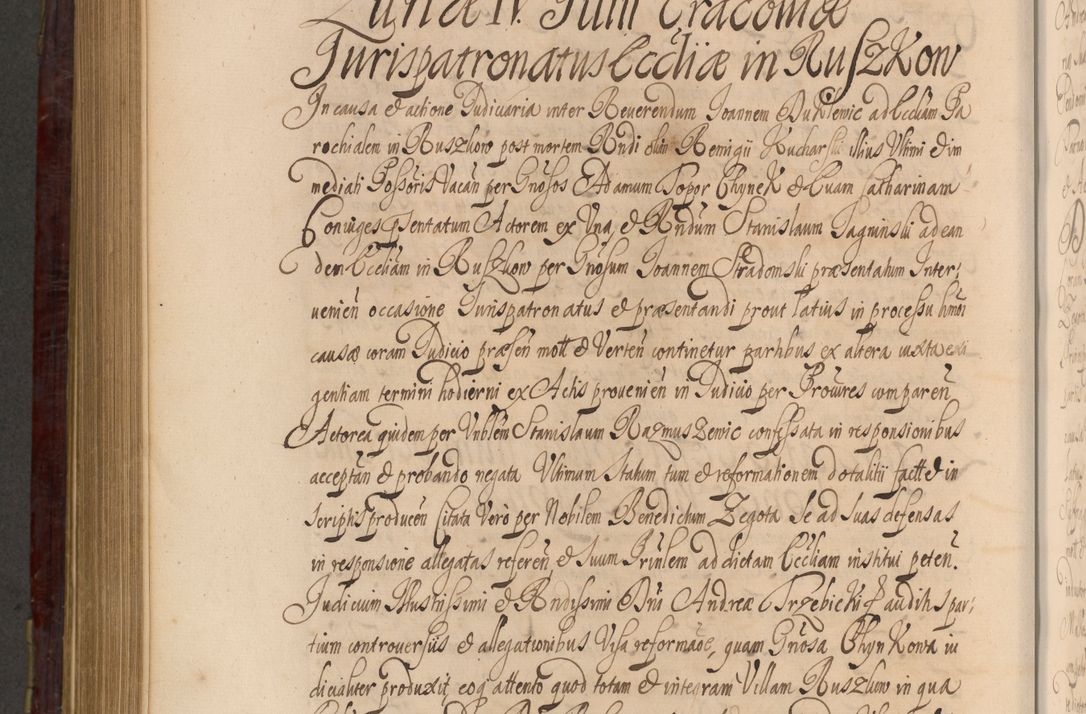 Lunæ IV. Julii Cracoviæ
Jurispatronatus Eccliæ in Ruszkow
In causa et actione Judiciaria inter Reverendum Joannem Duklewic ad Eccliam Pa
rochialem in Ruszkow post mortem Rndi olim Remigii Kucharski illius Ultimi et im
mediati Possoris Vacan per Gnosos Adamum Topor Chynek et Evam Catharinam
Coniuges psentatum Actorem ex Una, et Rndum Stanislaum Jagninski ad ean
dem Eccliam in Ruszkow per Gnosum Joannem Stradomski præsentatum Inter,
uenien occasione Jurispatronatus et præsentandi prout latius in processu hmoi
causæ coram Judicio præsen mott et Verten continetur partibus ex altera iuxta exi
gentiam termini hodierni ex Actis provenien in Judicio per Procures comparen
Actorea quidem per Vnblem Stanislaum Razmuszewic confessata in responsionibus
acceptan et probando negata Ultimum statum tum et reformationem dotalitii factt et in
scriptis producen Citata Vero per Nobilem Benedictum Zegota se ad suas defensas
in responsione allegatas referen, et suum Prinlem ad dictam Eccliam institui peten.
Judicium Illustrissimi et Rndissimi Dni Andreæ Trzebicki auditis par,
tium controversiis et allegationibus Visa reformaoe, quam Gnosa Chynkowa iu
dicialiter produxit eoq attento quod totam et integram Villam Ruszkow in qua